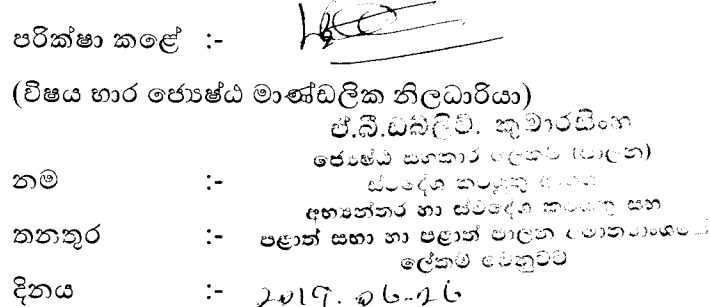 පරික්ෂා කළේ :-
(විෂය භාර ජ්‍යෙෂ්ඨ මාණ්ඩලික නිලධාරියා)
ඒ.බී.ඩබ්ලිව්. කුමාරසිංහ
ජ්‍යෙෂ්ඨ සහකාර ලේකම් (පාලන)
නම :-
ස්වදේශ කටයුතු අංශය
අභ්‍යන්තර හා ස්වදේශ කටයුතු සහ
තනතුර :- පළාත් සභා හා පළාත් පාලන අමාත්‍යාංශයේ
ලේකම් වෙනුවට
දිනය :- 2019.06.26